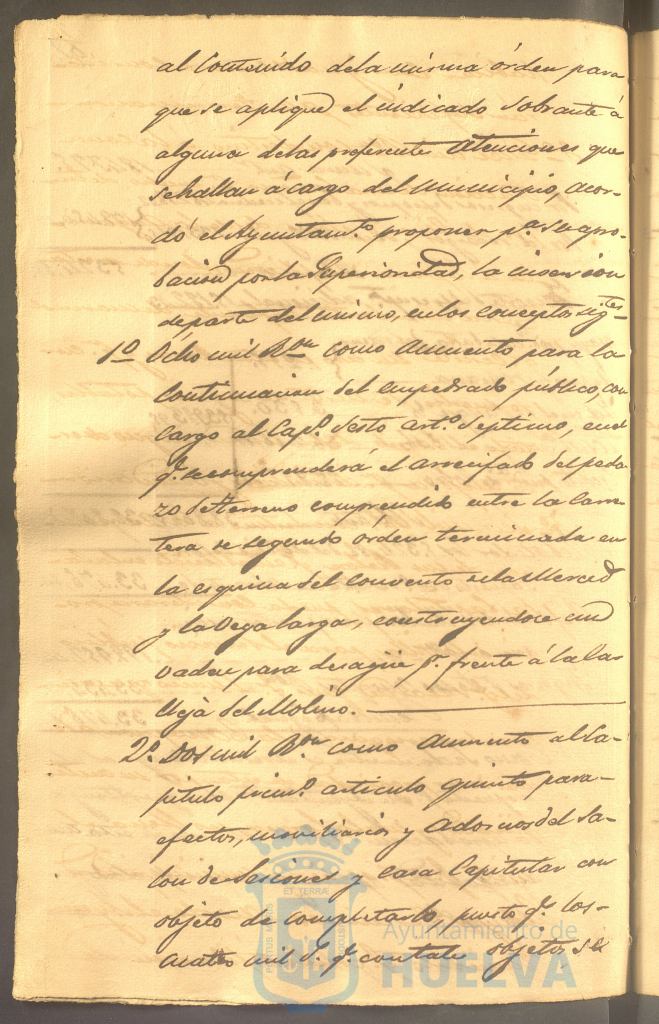 al Contenido dela misma órden para
que se aplique el indicado Sobrante á
alguna delas preferente Atenciones que
sehallan á cargo del Municipio, acor-
dó el Ayuntam.to proponer p.a su apro-
bacion por la Superioridad, la incersion
de parte del mismo, en los conceptos sig.tes
1.o Ócho mil R.on como Aumento para la
Continuacion del empedrado público, con
cargo al Cap.o Sesto art.o Septimo, en el
q.e se comprenderá el arrecifado del peda
zo de terreno comprendido entre la Carre
tera de segundo órden terminada en
la esquina del Convento dela Merced
y la Vega larga, construyendose un
vaden para desagüe p.r frente á la Ca
lleja del Molino.
2.o Dos mil R.on como Aumento al Ca-
pitulo prim.o articulo quinto para
efectos, moviliarios y Adornos del Sa-
lon de Sesiones y casa Capitular con
objeto de completarlo, puesto q.e los
cuatro mil q.e con tale objetos se
ET TERRÆ
Ayuntamiento de
HUELVA